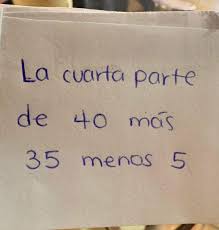 La cuarta parte
de 40 más
35 menos 5